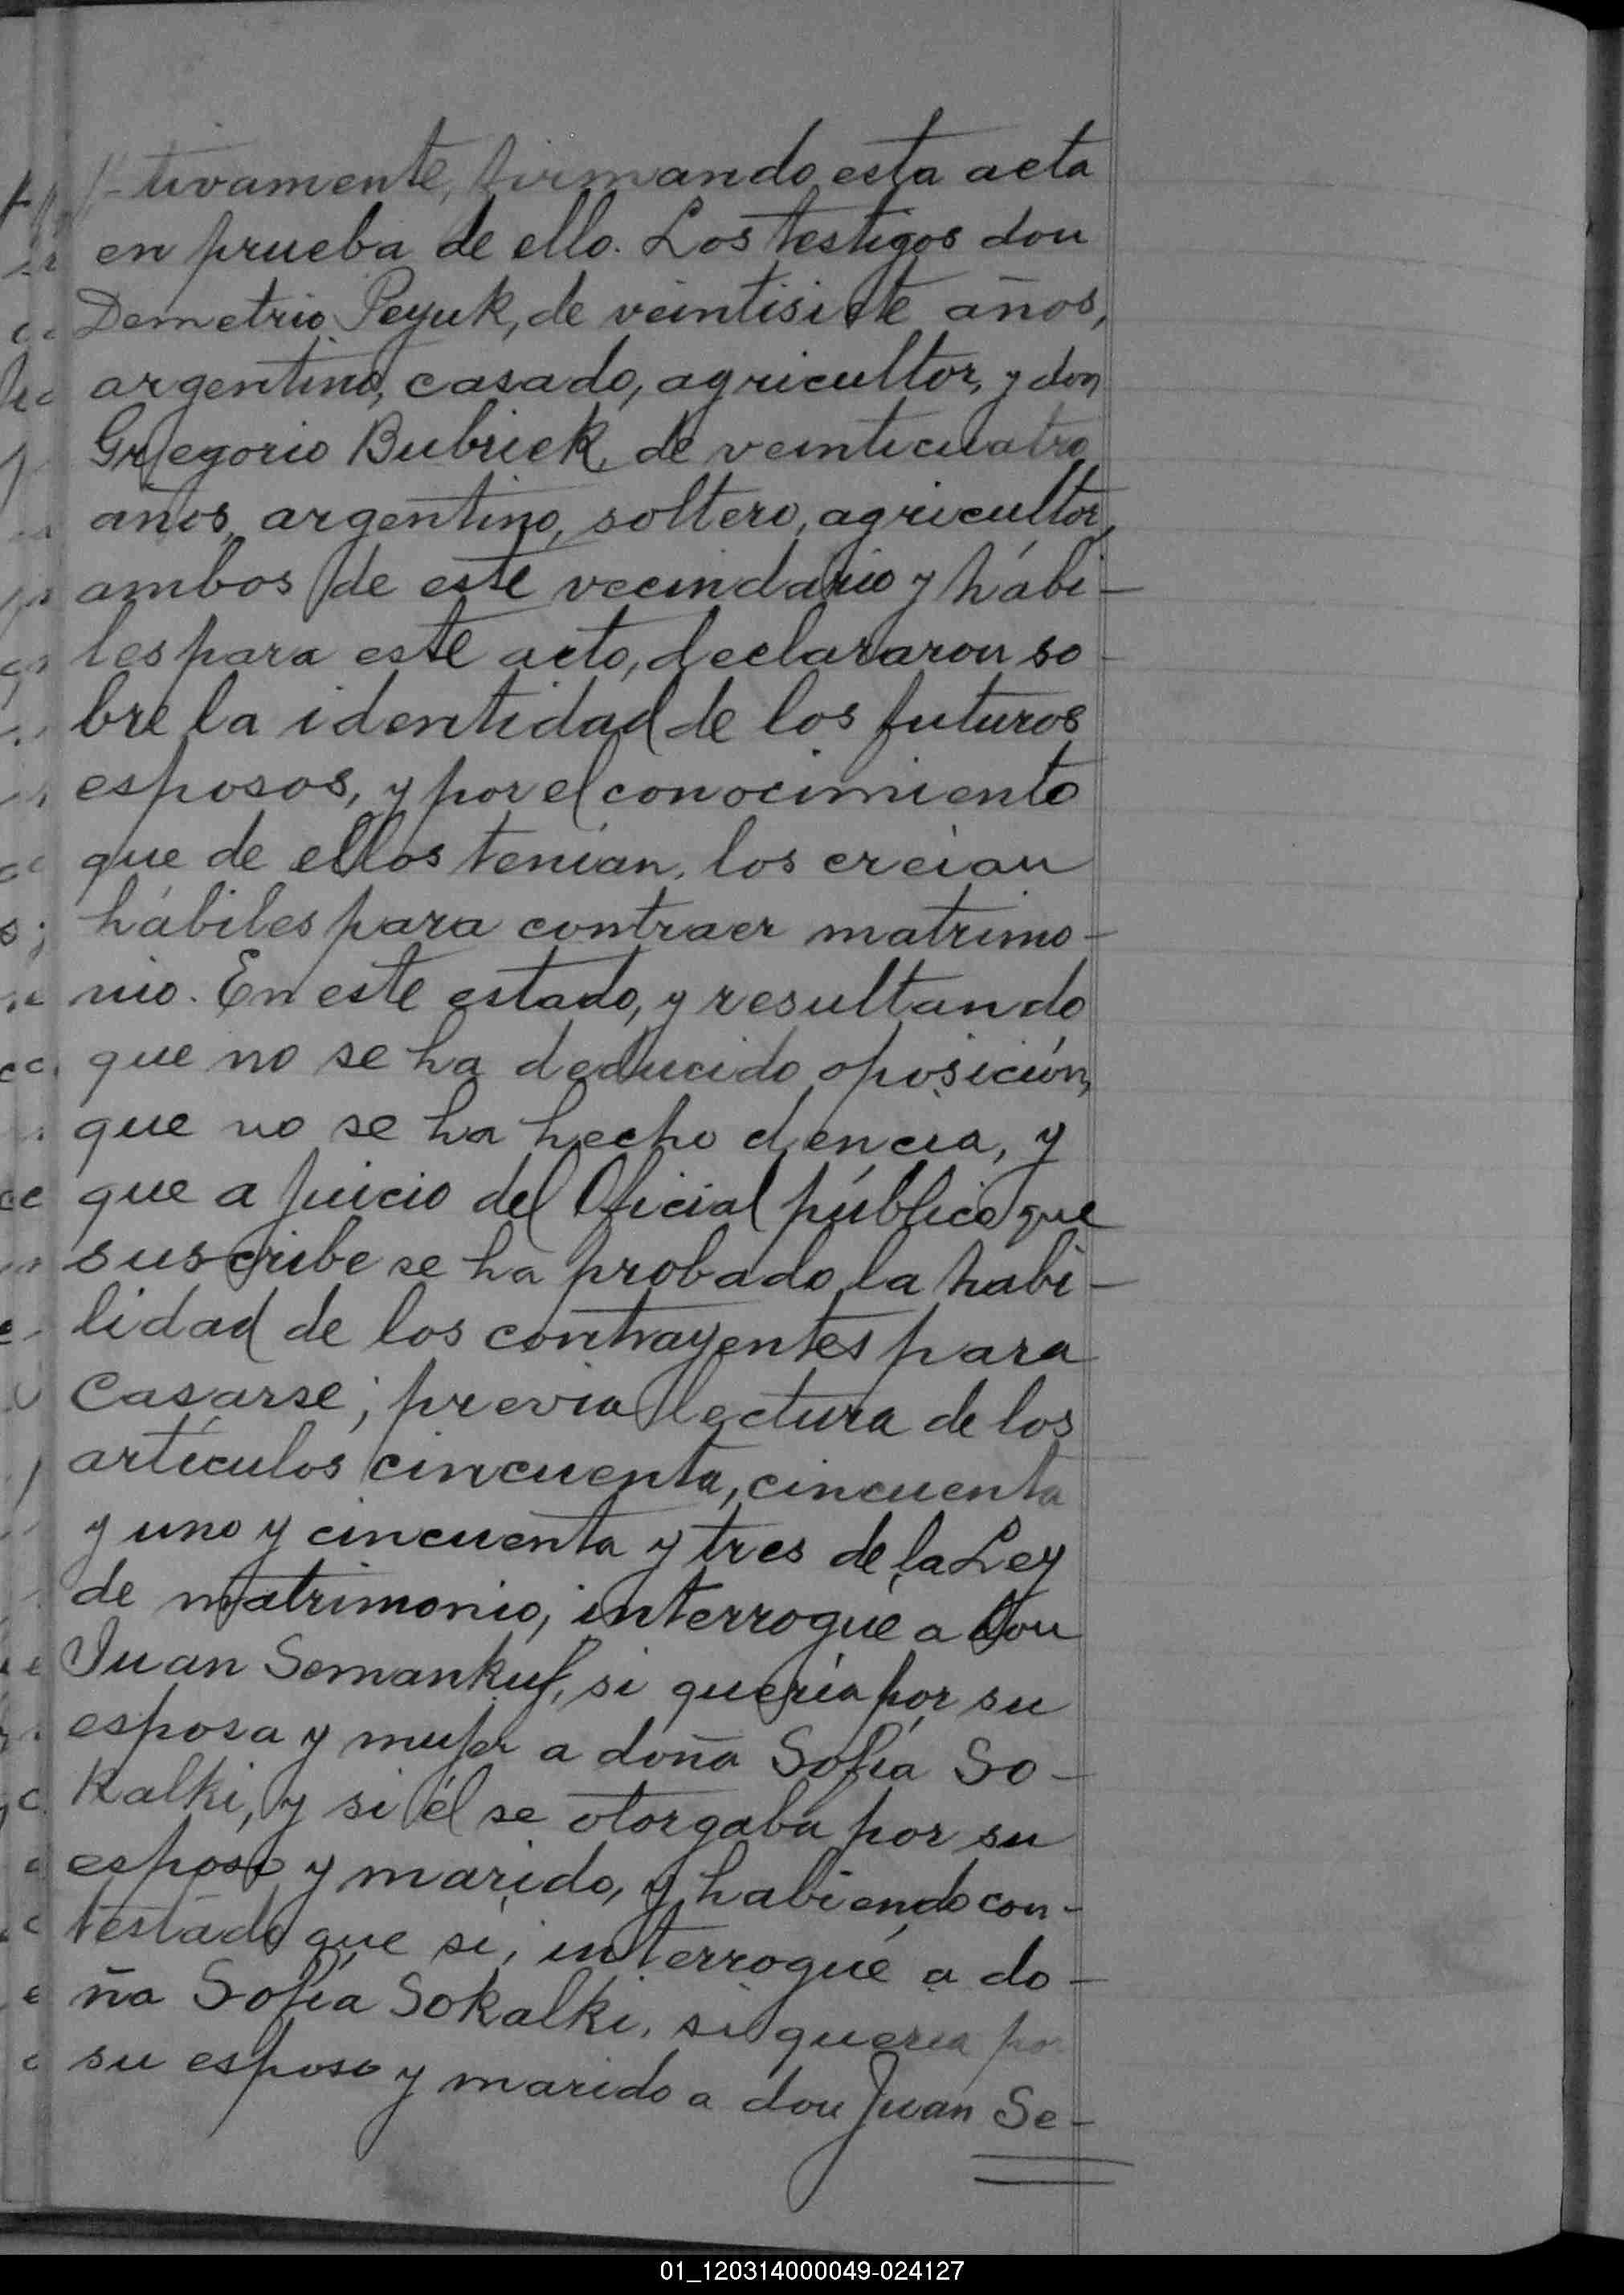 tivamente, firmando esta acta
en prueba de ello. Los testigos don
Demetrio Peyuk, de veintisiete años,
argentino, casado, agricultor, y don
Gregorio Bubriek, de veinticuatro
años, argentino, soltero, agricultor,
ambos de este vecindario y hábi-
les para este acto, declararon so-
bre la identidad de los futuros
esposos, y por el conocimiento
que de ellos tenían, los creían
hábiles para contraer matrimo-
nio. En este estado, y resultando
que no se ha deducido oposición,
que no se ha hecho dencia, y
que a juicio del Oficial público que
suscribe se ha probado la habi-
lidad de los contrayentes para
Casarse; previa lectura de los
artículos cincuenta, cincuenta
y uno y cincuenta y tres de la Ley
de matrimonio, interrogué a don
Juan Semankuf, si quería por su
esposa y mujer a doña Sofía So-
Kalki, y si él se otorgaba por su
esposo y marido, y habiendo con-
testado que sí, interrogué a do-
ña Sofía Sokalki, si quería por
su esposo y marido a don Juan Se-
01_120314000049-024127